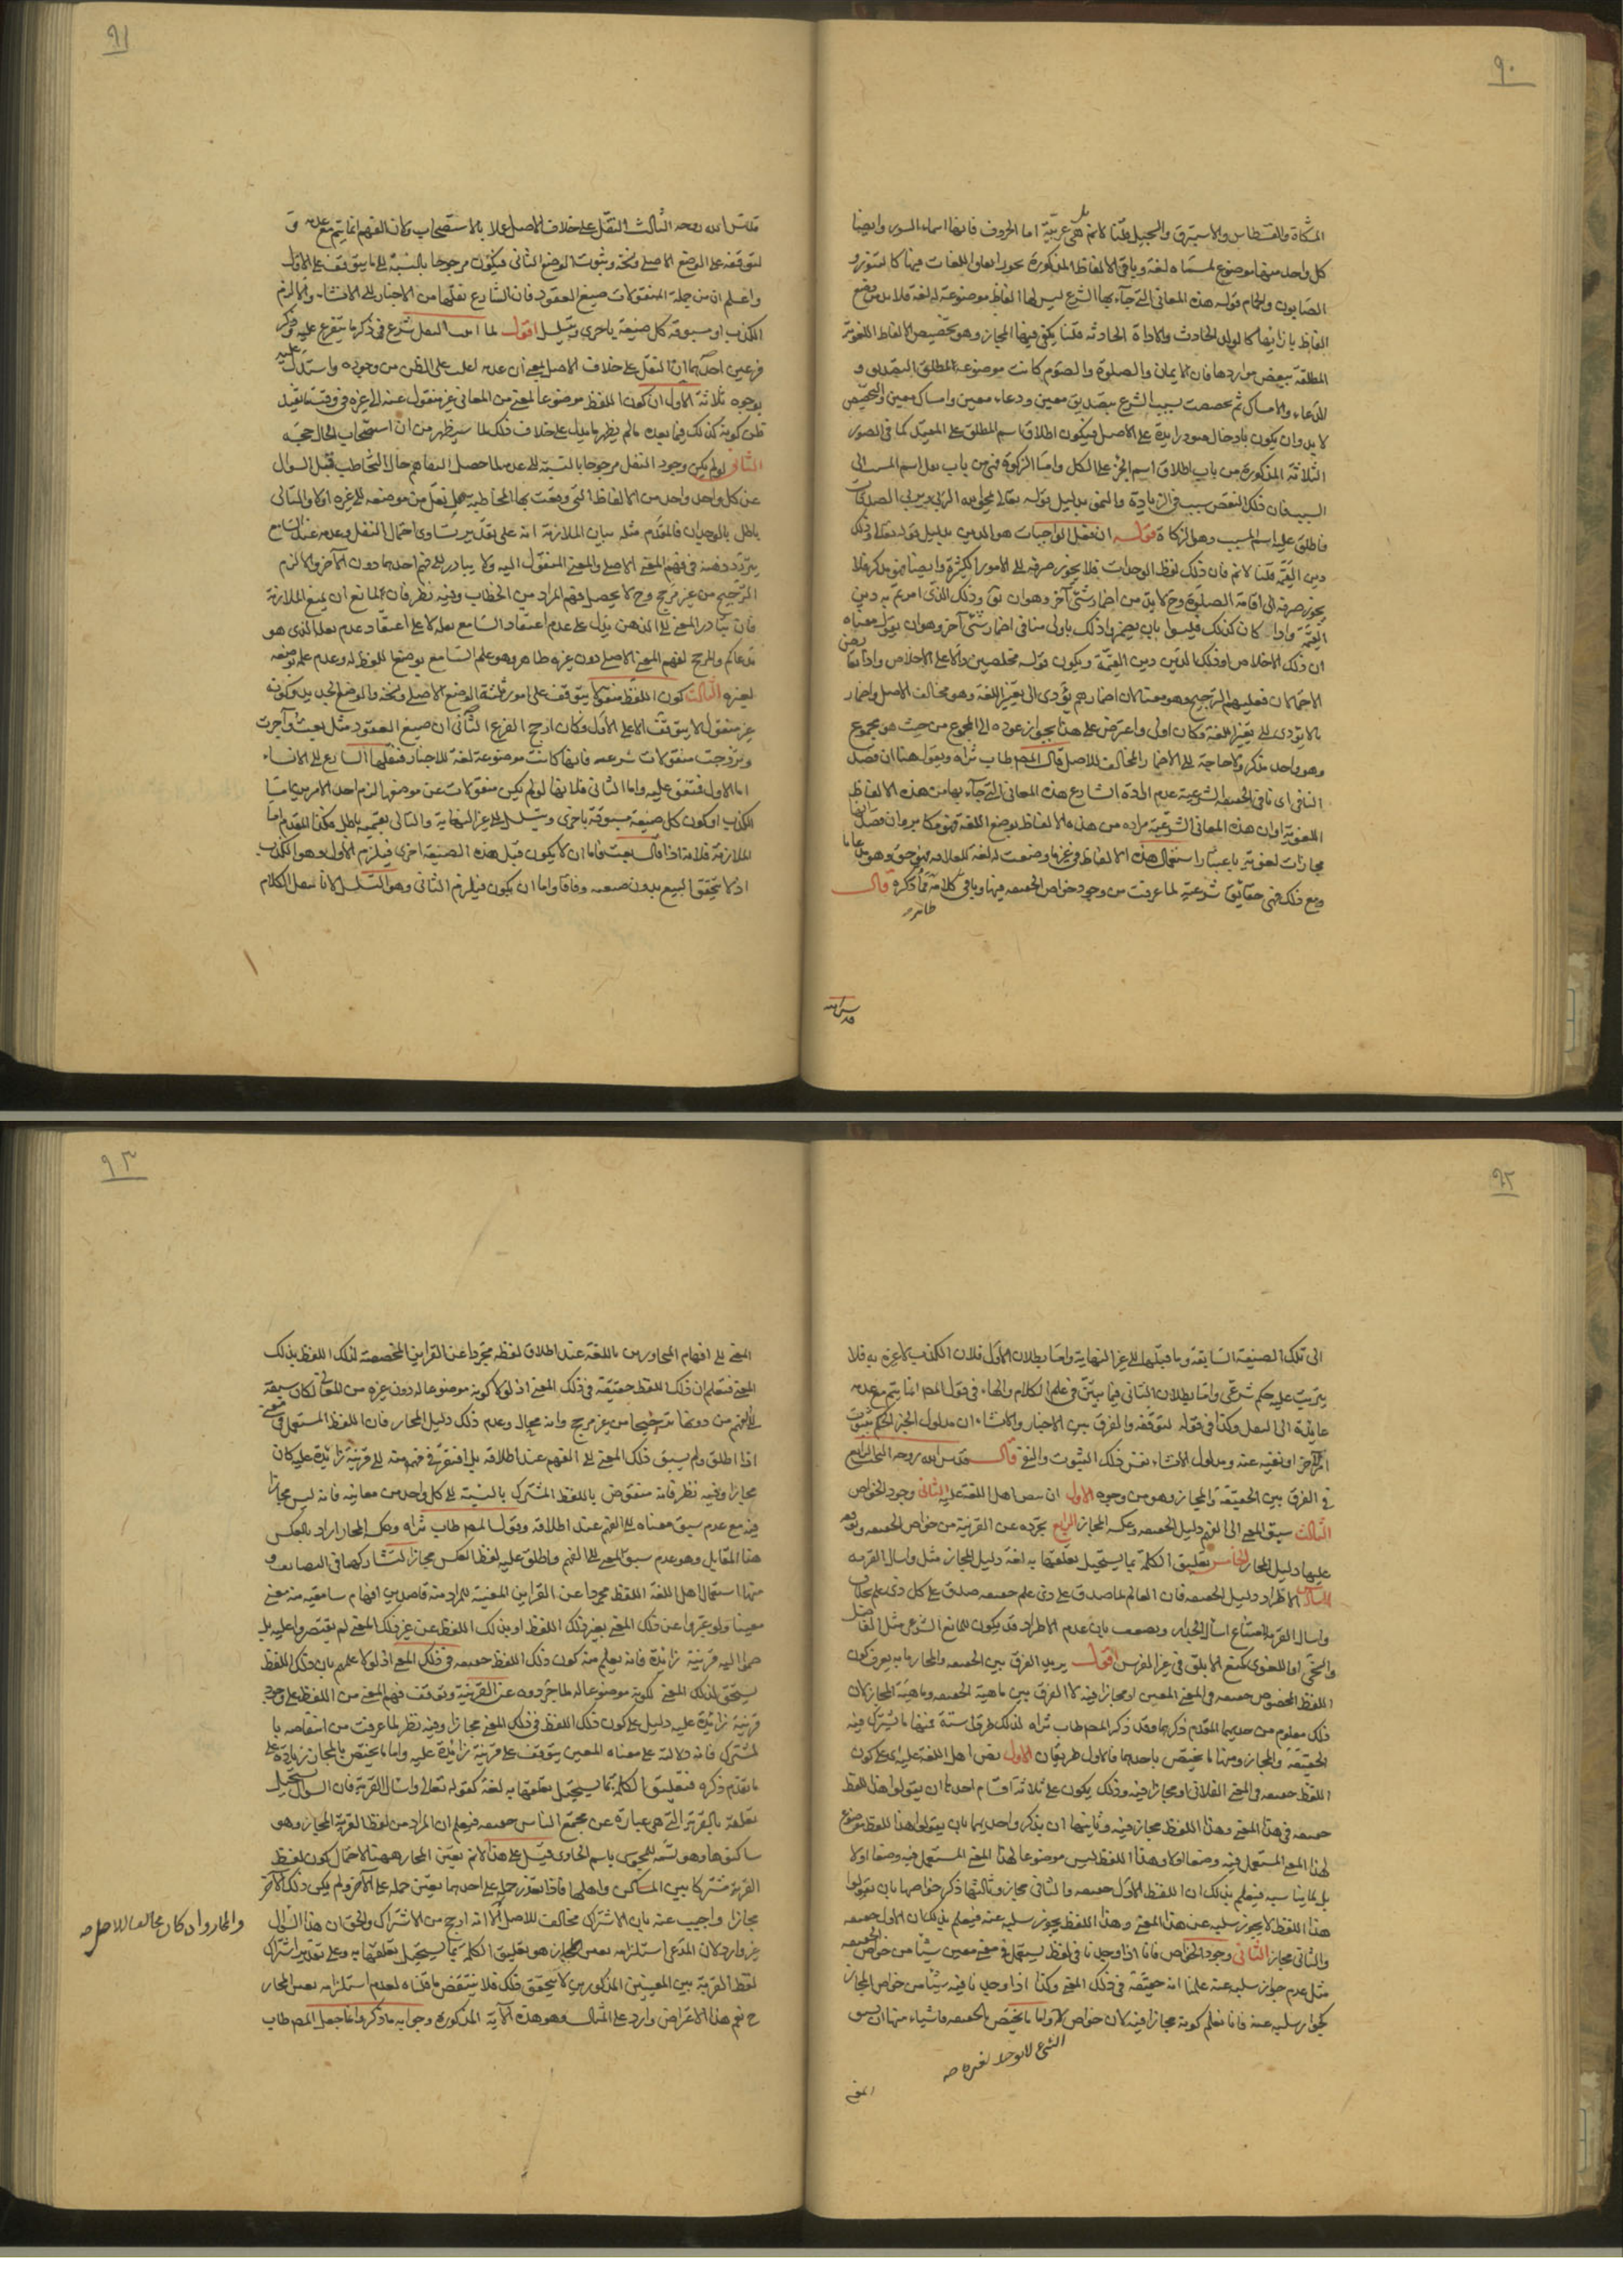 ٩٠
المشكاة والقسطاس والاستبرق والسجيل قلنا لا نم بل هي عربية اما الحروف فانها اسماء السور وايضا
كل واحد منها موضوع لمسماه لغة وباقي الالفاظ المذكورة يجوز اتفاق اللغات فيها كالتنور و
الصابون والحام قوله هذه المعاني التي جآء بها الشرع ليس لها الفاظ موضوعة له لغة فلا بد من وضع
الفاظ بازائها كالولد الحادث والاداة الحادثه قلنا يكفى فيها المجاز وهو تخصيص الالفاظ اللغوية
المطلقة ببعض مواردها فان الايمان والصلوة والصوم كانت موضوعة لمطلق التصديق و
للدعاء والامساك ثم تخصصت بسبب الشرع بتصديق معين ودعاء معين وامساك معين والتخصيص
لا بد وان يكون بادخال قيود زايدة على الاصل فيكون اطلاق اسم المطلق على المقيد كما في الصور
الثلاثة المذكورة من باب اطلاق اسم الجزء على الكل واما الزكوة فهي من باب نقل اسم المسبب الى
السبب فان ذلك النقص سبب في الزيادة والنمو بدليل قوله تعالى يمحق الله الربا ويربي الصدقات
فاطلق عليه اسم المسبب وهو الزكاة قوله ان فعل الواجبات هو الدين بدليل قوله تعالى وذلك
دين القيمة قلنا لا نم فان ذلك لفظ الوحدات فلا يجوز صرفه الى الامور الكثيرة وايضا فهو مذكر فلا
يجوز صرفه الى اقامة الصلوة وح لا بد من اضمار شئ آخر وهو ان نقول وذلك الذى امرتم به دين
القيمة واذا كان كذلك فليسوا بان يضمروا ذلك باولى منا في اضمار شئ آخر وهو ان نقول معناه
ان ذلك الاخلاص او ذلك التدين دين القيمة ويكون قوله مخلصين دالا على الاخلاص واذا تعارض
الاحتمالان فعليهم الترجيح وهو معنا لان اضمارهم يؤدى الى تغيير اللغة وهو مخالف الاصل واضمار
ما لا يؤدى الى تغيير اللغة وكان اولى واعترض على هذا بجواز عوده الى المجموع من حيث هو مجموع
وهو واحد مذكر ولا حاجة الى الاضمار المخالف للاصل قال المصنف طاب ثراه ونقول هنا ان قصد
النافي اى نافي الحقيقة الشرعية عدم ارادة الشارع هذه المعاني التي جآء بها من هذه الالفاظ
اللغوية او ان هذه المعاني الشرعية مراده من هذه الالفاظ بوضع اللغة فهو مكابر وان قصد انها
مجازات لغوية باعتبار استعمال هذه الالفاظ في غير ما وضعت له لغة للعلاقة فهو حق وهو مدعانا
ومع ذلك فهي حقائق شرعية لما عرفت من وجود خواص الحقيقة فيها وباقي كلامه مما ذكره ظاهر قال
قدس الله
٩١
قدس الله روحه الثالث النقل على خلاف الاصل عملا بالاستصحاب ولان الفهم انما يتم مع عدمه و
لتوقفه على الوضع الاصلي ونسخه وثبوت الوضع الثاني فيكون مرجوحا بالنسبة الى ما يتوقف على الاول
واعلم ان من جملة المنقولات صيغ العقود فان الشارع نقلها من الاخبار الى الانشاء والا لزم
الكذب او مسبوقة كل صيغة باخرى ويتسلسل اقول لما اثبت النقل شرع في ذكر ما يتفرع عليه وذكر
فرعين احدهما ان النقل على خلاف الاصل يعني ان عدمه اغلب على الظن من وجوده واستدل عليه
بوجوه ثلاثة الاول ان كون اللفظ موضوعا لمعنى من المعاني غير منقول عنه الى غيره في وقت ما يفيد
ظن كونه كذلك فيما بعده ما لم يظهر ما يدل على خلاف ذلك لما سيظهر من ان استصحاب الحال حجة
الثاني لو لم يكن وجود النقل مرجوحا بالنسبة الى عدمه لما حصل التفاهم حال التخاطب قبل السوال
عن كل واحد واحد من الالفاظ التي وقعت بها المخاطبه هل نقل من موضعه الى غيره او لا والتالي
باطل بالوجدان فالمقدم مثله بيان الملازمة انه على تقدير تساوى احتمال النقل وعدمه عند السامع
يتردد ذهنه في فهم المعنى الاصلى والمعنى المنقول اليه ولا يبادر الى فهم احدهما دون الآخر والا لزم
الترجيح من غير مرجح وح لا يحصل فهم المراد من الخطاب وفيه نظر فان للمانع ان يمنع الملازمة
فان تبادر المعنى الى الذهن يدل على عدم اعتقاد السامع نقله لا على اعتقاد عدم نقله الذى هو
مدعاكم والمرجح لفهم المعنى الاصلى دون غيره ظاهر وهو علم السامع بوضع اللفظ له وعدم علمه بوضعه
لغيره الثالث كون اللفظ منقولا يتوقف على امور ثلثة الوضع الاصلى ونسخه والوضع الجديد وكونه
غير منقول لا يتوقف الا على الاول فكان ارجح الفرع الثاني ان صيغ العقود مثل بعت وآجرت
وتزوجت منقولات شرعية فانها كانت موضوعة لغة للاخبار فنقلها الشارع الى الانشاء
اما الاول فمتفق عليه واما الثاني فلانها لو لم تكن منقولات عن موضعها لزم احد الامرين اما
الكذب او كون كل صيغة مسبوقة باخرى ويتسلسل الى غير النهاية والتالي بقسميه باطل فكذا المقدم اما
الملازمة فلانه اذا قال بعت فاما ان لا يكون قبل هذه الصيغة اخرى فيلزم الاول وهو الكذب
اذ لا يتحقق البيع بدون صيغة وفاقا واما ان يكون فيلزم الثاني وهو التسلسل لانا ننقل الكلام
٩٢
الى تلك الصيغة السابقة وما قبلها الى غير النهاية واما بطلان الاول فلان الكذب لا عبرة به فلا
يترتب عليه حكم شرعي واما بطلان الثاني فيما تبين في علم الكلام والهاء في قول المصنف انما يتم مع عدمه
عايدة الى النقل وكذا في قوله لتوقفه والفرق بين الاخبار والانشاء ان مدلول الخبر الحكم بثبوت
امر لآخر او نفيه عنه ومدلول الانشاء نفس ذلك الثبوت والنفي قال قدس الله روحه البحث الرابع
في الفرق بين الحقيقة والمجاز وهو من وجوه الاول ان ينص اهل اللغة عليه الثاني وجود الخواص
الثالث سبق المعنى الى الفهم دليل الحقيقة وعكسه المجاز الرابع تجرده عن القرينة من خواص الحقيقة وتوقفه
عليها دليل المجاز الخامس تعليق الكلمة بما يستحيل تعلقها به لغة دليل المجاز مثل واسال القرية
السادس الاطراد دليل الحقيقة فان العالم لما صدق على ذى علم حقيقة صدق على كل ذى علم بخلاف
واسال القرية لامتناع اسال الجدار ويضعف بان عدم الاطراد قد يكون لمانع الشرع مثل الفاضل
والسخي او اللغوى كمنع الابلق في غير الفرس اقول يريد الفرق بين الحقيقة والمجاز ما به يعرف كون
اللفظ المخصوص حقيقة في المعنى المعين او مجازا فيه لا الفرق بين ماهية الحقيقة وماهية المجاز لان
ذلك معلوم من حديهما المقدم ذكرهما وقد ذكر المصنف طاب ثراه لذلك طرقا ستة فمنها ما يشترك فيه
الحقيقة والمجاز ومنها ما يختص باحدهما فالاول طريقان الاول نص اهل اللغة عليه اى على كون
اللفظ حقيقة في المعنى الفلاني او مجازا فيه وذلك يكون على ثلاثة اقسام احدها ان يقولوا هذا اللفظ
حقيقة في هذا المعنى وهذا اللفظ مجاز فيه وثانيها ان يذكروا حديهما بان يقولوا هذا اللفظ موضوع
لهذا المعنى المستعمل فيه وضعا اولا وهذا اللفظ ليس موضوعا لهذا المعنى المستعمل فيه وضعا اولا
بل لما يناسبه فيعلم بذلك ان اللفظ الاول حقيقة والثاني مجاز وثالثها ذكر خواصهما بان يقولوا
هذا اللفظ لا يجوز سلبه عن هذا المعنى وهذا اللفظ يجوز سلبه عنه فيعلم بذلك ان الاول حقيقة
والثاني مجاز الثاني وجود الخواص فانا اذا وجدنا في لفظ يستعمل في معنى معين شيئا من خواص الحقيقة
مثل عدم جواز سلبه عنه علمنا انه حقيقة في ذلك المعنى وكذا اذا وجدنا فيه شيئا من خواص المجاز
كجواز سلبه عنه فانا نعلم كونه مجازا فيه لان خواص الشئ لا توجد لغيره صح واما ما يختص بالحقيقة فاشياء منها ان يسبق
المعنى
٩٣
المعنى الى افهام المحاورين باللغة عند اطلاق لفظه مجردا عن القراين المخصصة لذلك اللفظ بذلك
المعنى فنعلم ان ذلك اللفظ حقيقة في ذلك المعنى اذ لولا كونه موضوعا له دون غيره من المعاني لكان سبقه
الى الفهم من دونها ترجيحا من غير مرجح وانه محال وعدم ذلك دليل المجاز فان اللفظ المستعمل في معنى
اذا اطلق ولم يسبق ذلك المعنى الى الفهم عند اطلاقه بل افتقر في فهمه منه الى قرينة زائدة عليه كان
مجازا وفيه نظر فانه منقوض باللفظ المشترك بالنسبة الى كل واحد من معانيه فانه ليس مجازا
فيه مع عدم سبق معناه الى الفهم عند اطلاقه وقول المصنف طاب ثراه وعكسه المجاز اراد بالعكس
هنا المقابل وهو عدم سبق المعنى الى الفهم واطلق عليه لفظ العكس مجازا لتشاركهما في التضاد و
منها استعمال اهل اللغة اللفظ مجردا عن القراين المعينة للمراد منه قاصدين افهام سامعيه منه معنى
معينا ولو عبروا عن ذلك المعنى بغير ذلك اللفظ او بذلك اللفظ عن غير ذلك المعنى لم يقتصروا عليه بل
ضموا اليه قرينة زائدة فانه يعلم منه كون ذلك اللفظ حقيقة في ذلك المعنى اذ لولا علمهم بان ذلك اللفظ
يستحق لذلك المعنى لكونه موضوعا له لما جردوه عن القرينة وتوقف فهم المعنى من اللفظ على وجود
قرينة زائدة عليه دليل على كون ذلك اللفظ في ذلك المعنى مجازا وفيه نظر لما عرفت من انتقاضه با
لمشترك فانه دلالته على معناه المعين يتوقف على قرينة زائدة عليه واما ما يختص بالمجاز زيادة على
ما تقدم ذكره فتعليق الكلمة بما يستحيل تعلقها به لغة كقوله تعالى واسال القرية فان السوال يستحيل
تعلقه بالقرية التي هي عبارة عن مجتمع الناس حقيقة فيعلم ان المراد من لفظ القرية المجاز وهو
ساكنوها وهو تسمية للمحوى باسم الحاوى فقيل على هذا لا نم تعين المجاز ههنا لاحتمال كون لفظ
القرية مشتركا بين المساكن واهلها فاذا تعذر حمله على احدهما تعين حمله على الآخر ولم يكن ذلك الآخر
مجازا واجيب عنه بان الاشتراك مخالف للاصل والمجاز وان كان مخالفا للاصل صح الا انه ارجح من الاشتراك والحق ان هذا السوال
غير وارد لان المدعى استلزامه نفس المجاز هو تعليق الكلمة بما يستحيل تعلقها به وعلى تقدير اشتراك
لفظ القرية بين المعنيين المذكورين لا يتحقق ذلك فلا ينتقض ما قلناه لعدم استلزامه نفس المجاز
ح نعم هذا الاعتراض وارد على المثال وهو هذه الآية المذكورة وجوابه ما ذكر وانما جعل المصنف طاب